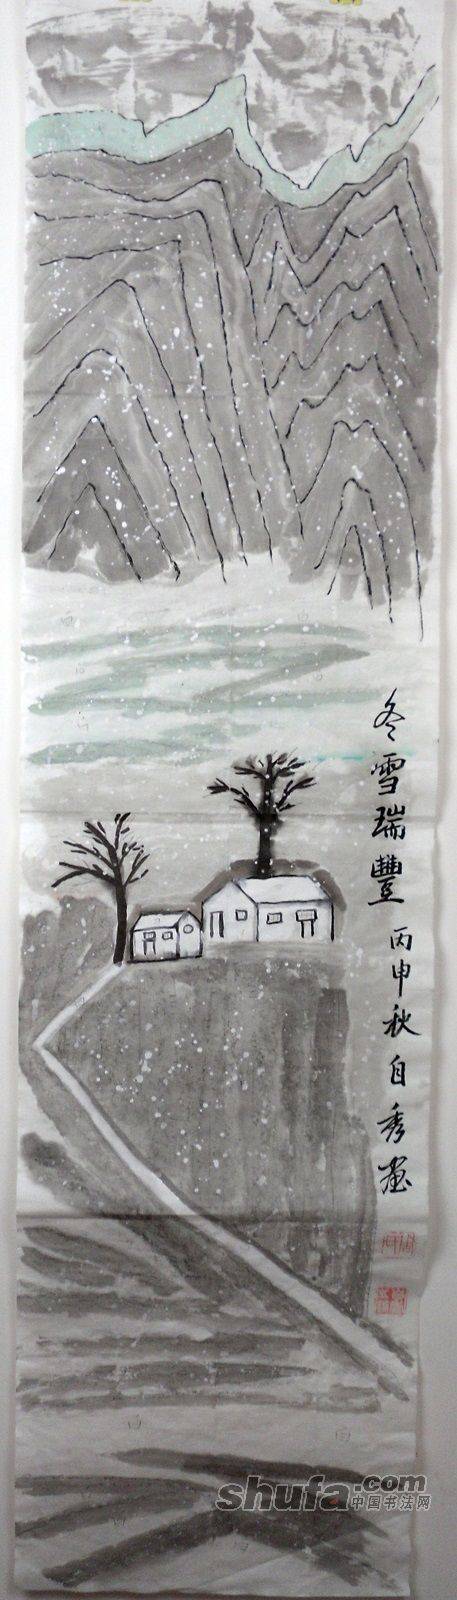 冬雪瑞豐
丙申秋自秀画
shufa.com
中国书法网